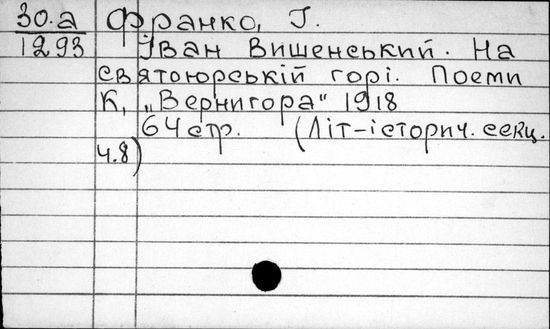 30.а Франко, І.
1293 Іван Вишенський. На
святоюрській горі. Поеми
К., „Вернигора" 1918
64 стр. (Літ-історич. секц.
ч.8)